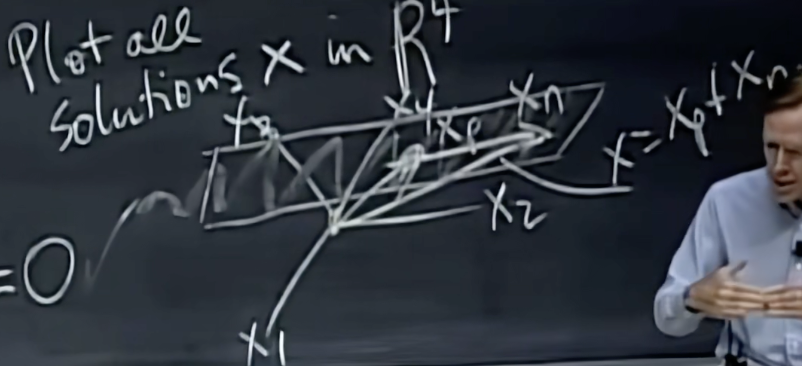 Plot all
solutions x in R⁴
x₃
x₄
xₚ
xₙ
x = xₚ + xₙ
x₂
=0
x₁